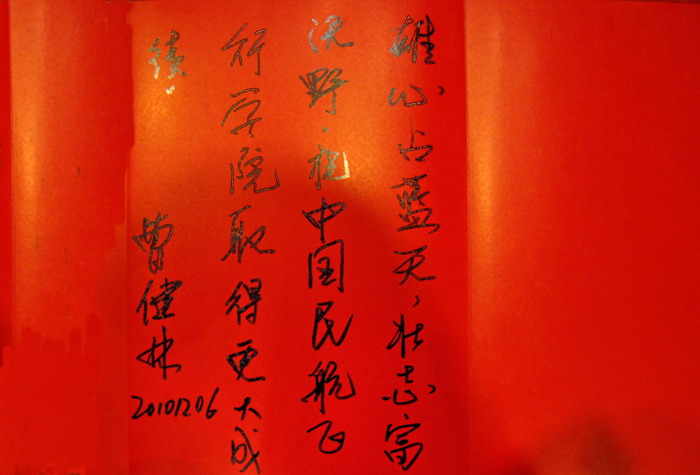 雄心占蓝天，壮志富
沃野。祝中国民航飞
行学院取得更大成
绩。
曹健林
20101206